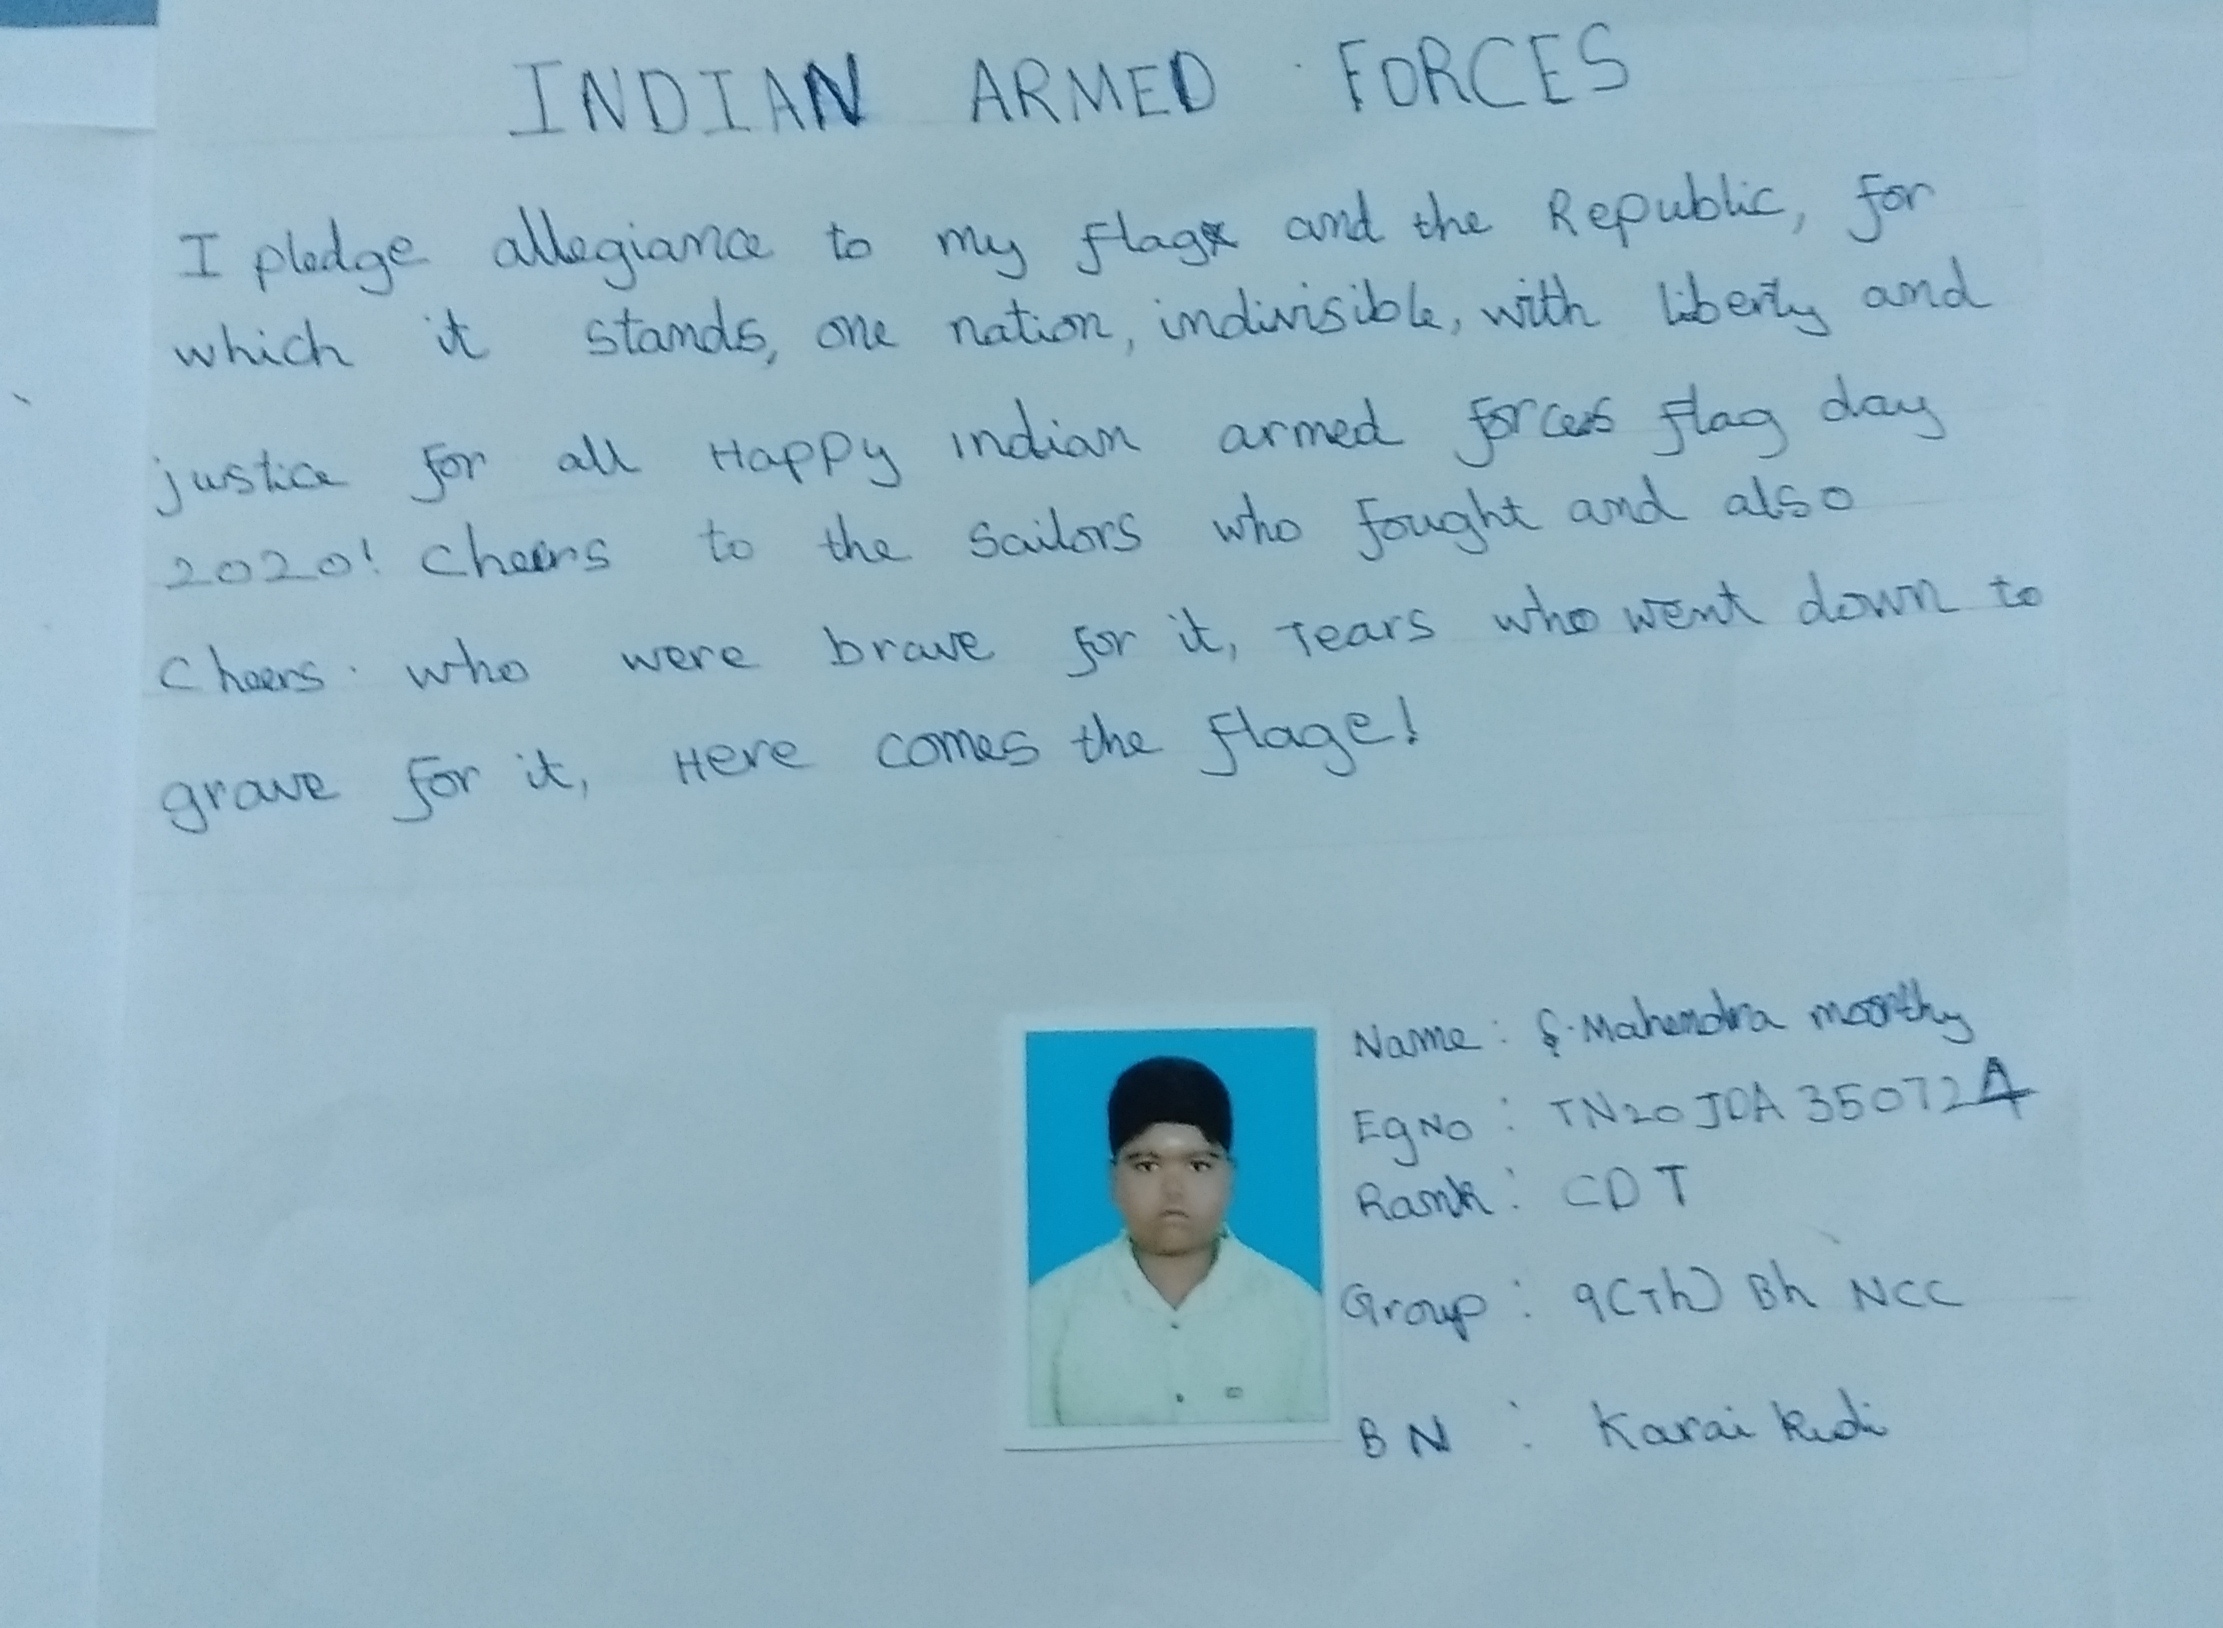 INDIAN ARMED FORCES
I pledge allegiance to my flag and the Republic, for
which it stands, one nation, indivisible, with liberty and
justice for all Happy indian armed forces flag day
2020! Cheers to the Sailors who fought and also
Cheers. who were brave for it, Tears who went down to
grave for it, Here comes the flage!
Name : S. Mahendra moorthy
EgNo : TN20JDA350724
Rank : CDT
Group : 9(Th) Bh NCC
BN : Karai kudi